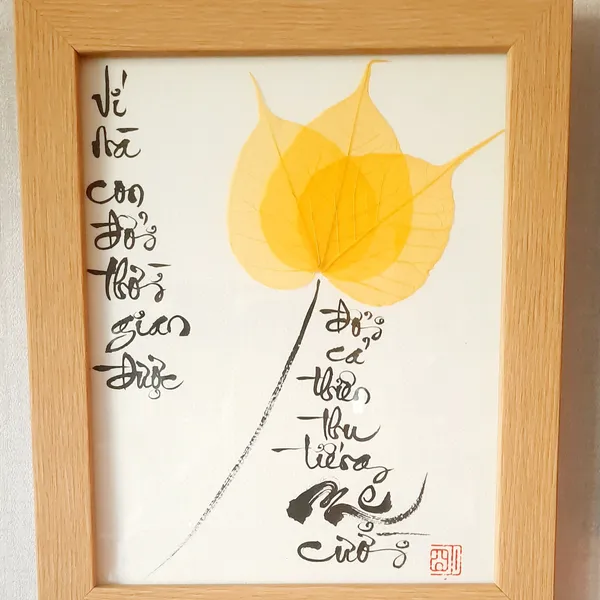 Ví
mà
con
đổi
thời
gian
được
đổi
cả
thiên
thu
tiếng
Mẹ
cười